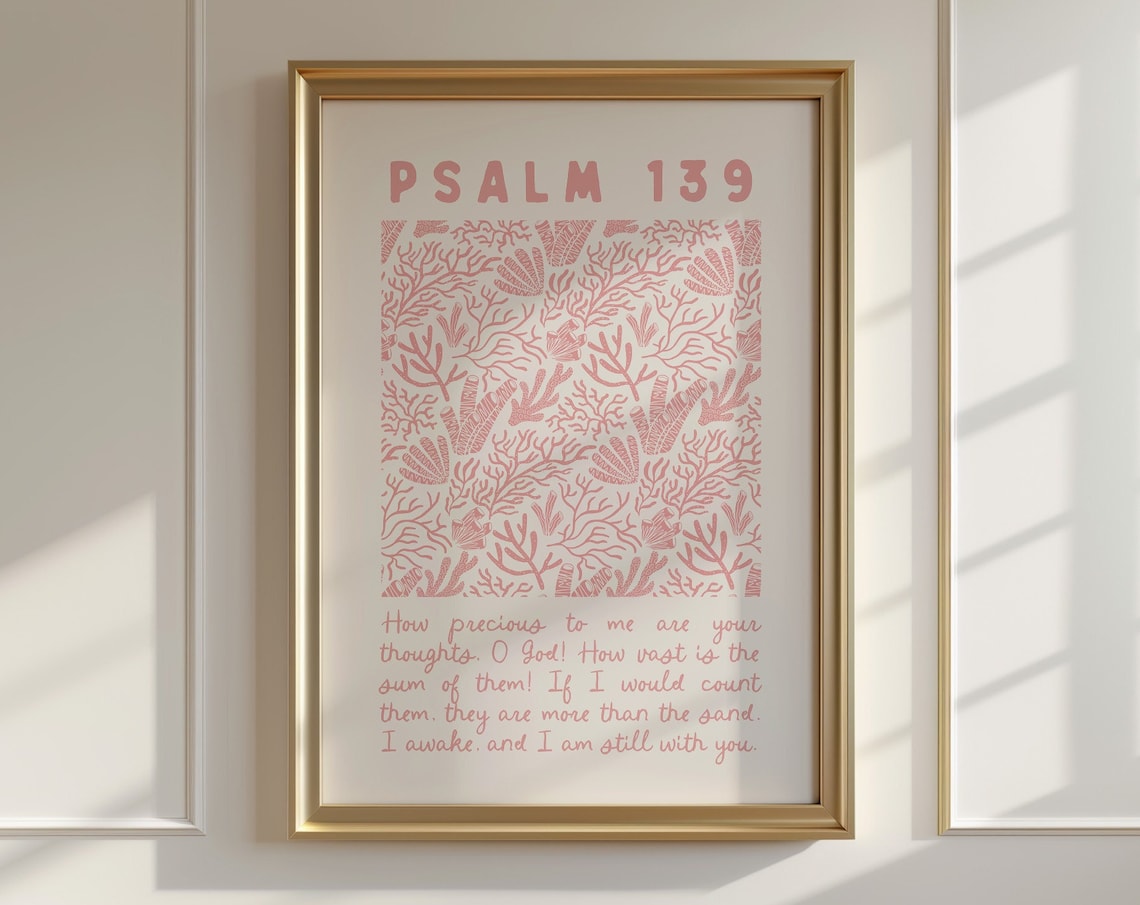 PSALM 139
How precious to me are your
thoughts, O God! How vast is the
sum of them! If I would count
them, they are more than the sand.
I awake, and I am still with you.